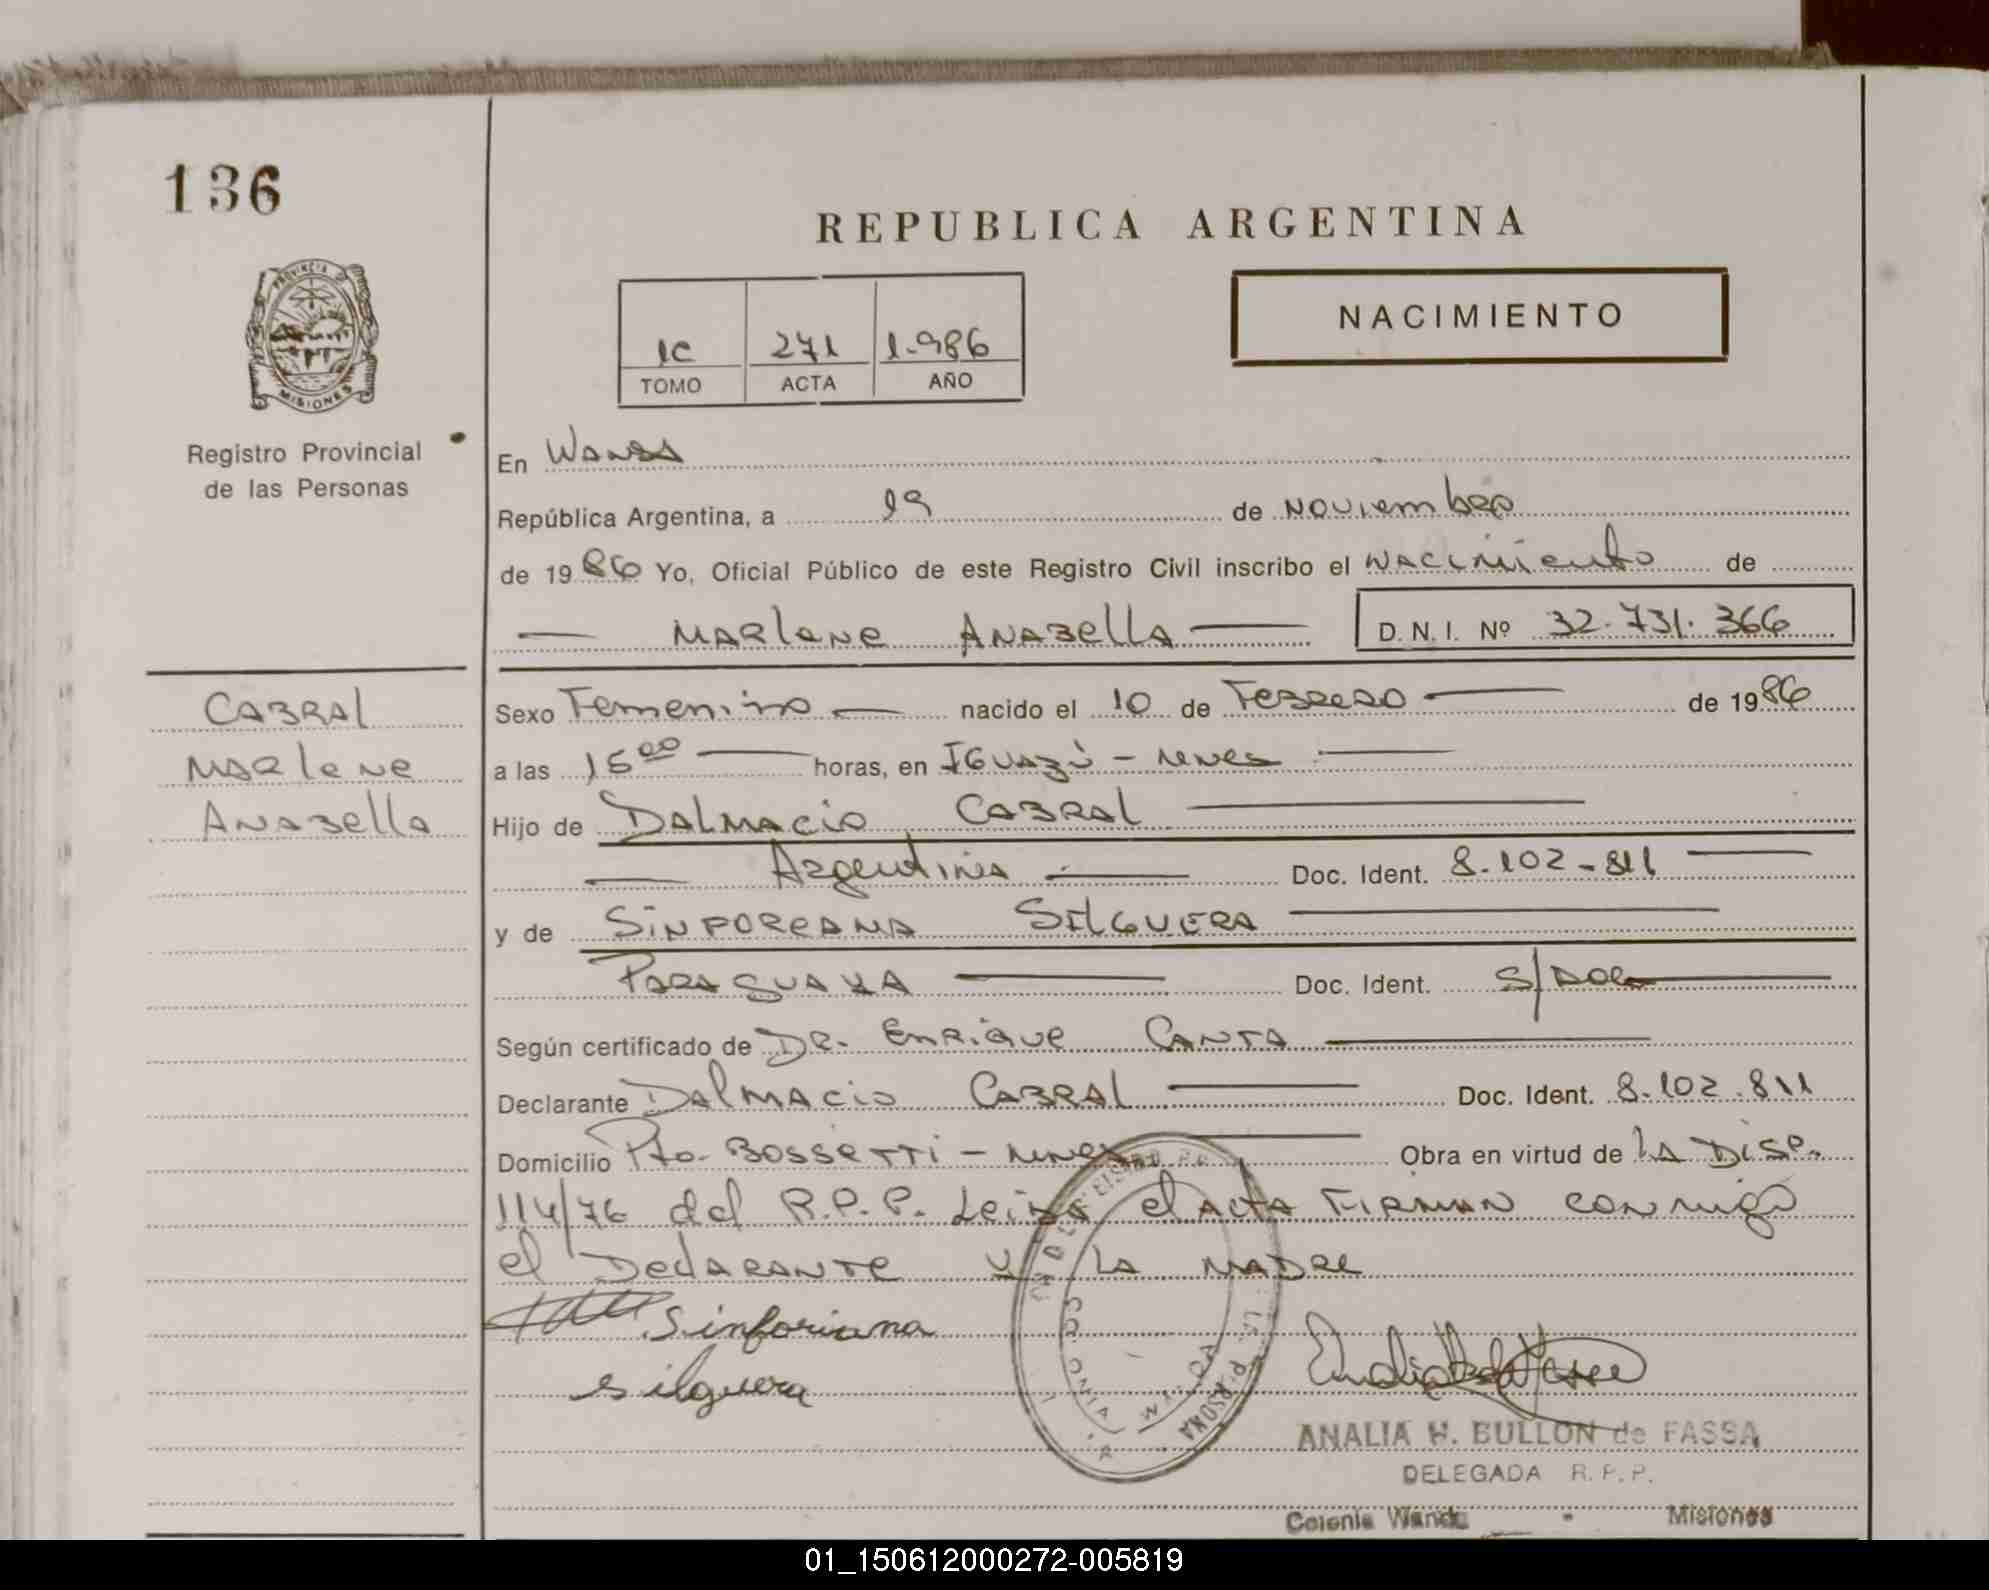 136
REPUBLICA ARGENTINA
PROVINCIA DE
MISIONES
1C 271 1.986
TOMO ACTA AÑO
NACIMIENTO
Registro Provincial
de las Personas
En Wanda
República Argentina, a 19 de Noviembre
de 1986 Yo, Oficial Público de este Registro Civil inscribo el Nacimiento de
— Marlene Anabella — D. N. I. Nº 32.731.366
Cabral
Marlene
Anabella
Sexo Femenino — nacido el 10 de Febrero — de 1986
a las 15 00 — horas, en Iguazú - Mnes —
Hijo de Dalmacio Cabral —
— Argentina — Doc. Ident. 8.102-811 —
y de Sinforeana Silguera —
Paraguaya — Doc. Ident. S/Doc —
Según certificado de Dr. Enrique Canta —
Declarante Dalmacio Cabral — Doc. Ident. 8.102.811
Domicilio Pto. Bossetti - Mnes — Obra en virtud de la Disp.
114/76 del R.P.P. Leida el acta Firman conmigo
el Declarante y la Madre
Sinforiana
Silguera
ANALIA H. BULLON de FASSA
DELEGADA R. P. P.
Colonia Wanda - Misiones
01_150612000272-005819